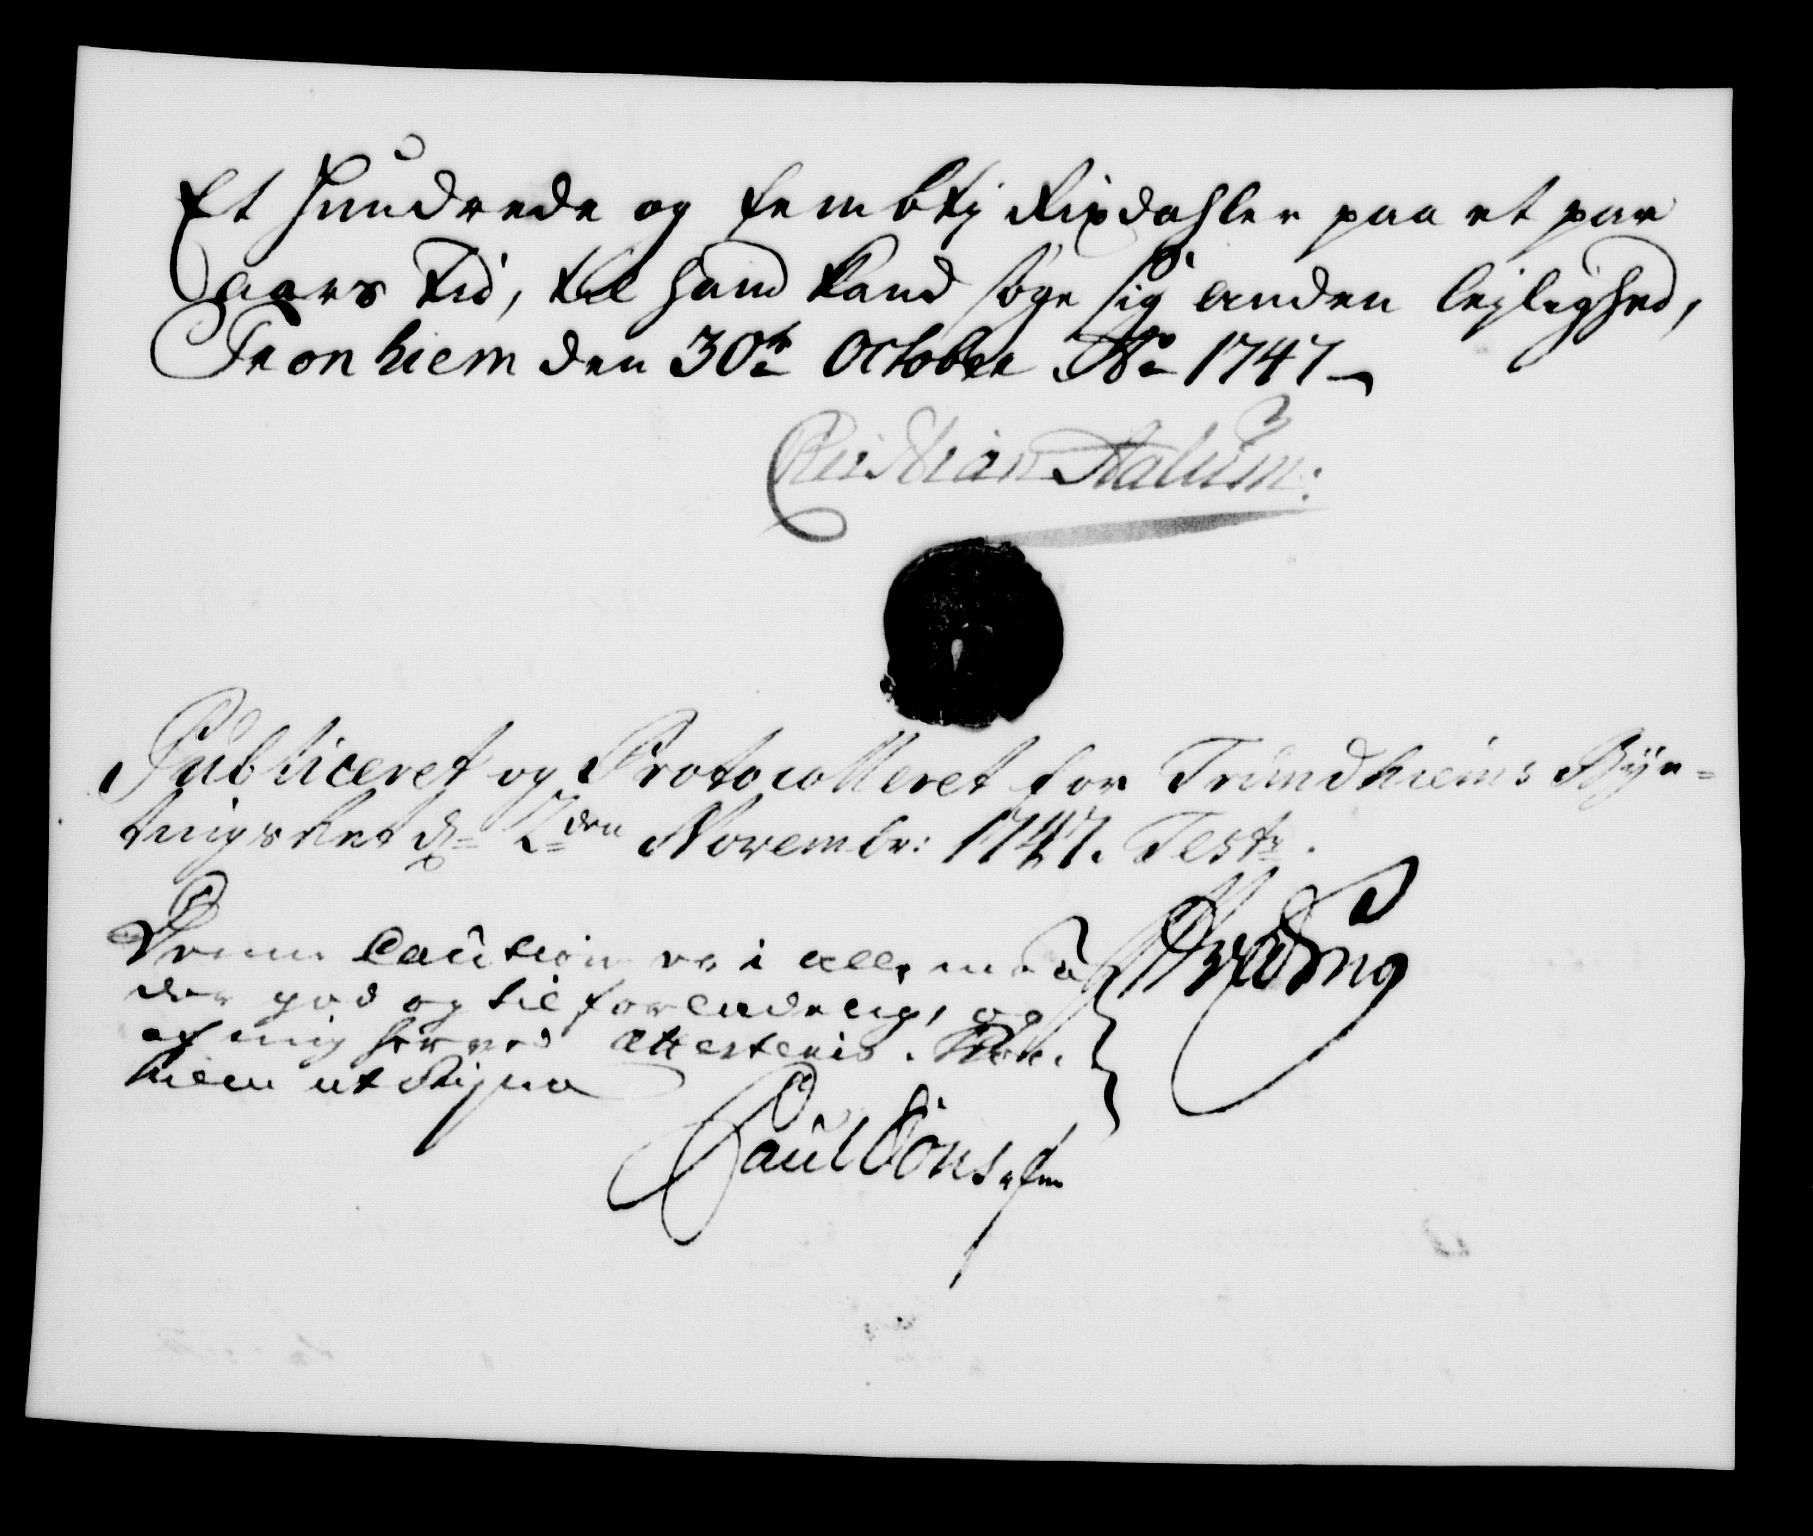 Et Hundrede og fembtj Rixdahler paa et par
aars tid, til hand kand søge sig anden lejlighed,
Tronhiem den 30te October Ao 1747
Christian Aalum:
Publiceret og Protocolleret for Trundhiems Bÿe=
tingsRet d= 2den Novembr: 1747. Test.
Denne Caution er i alle maa
der god og tilforladelig, og
af mig herved attesteris. Tron
hiem ut Supra
Paul